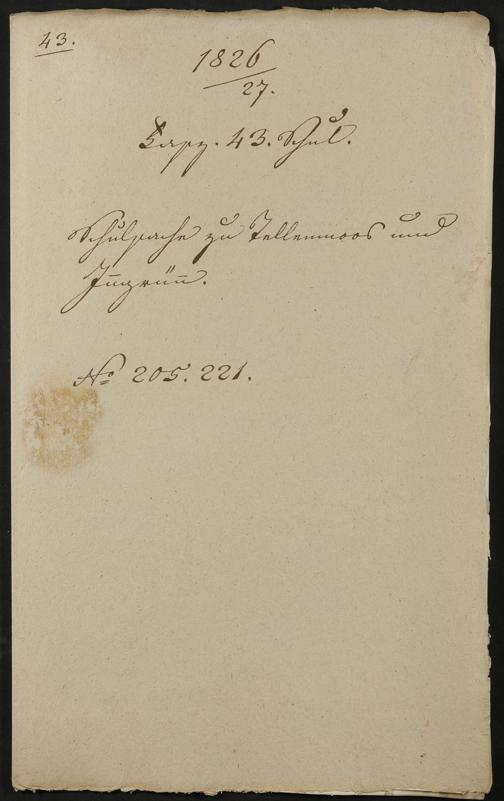 43.
1826
27.
Fasz. 43. Schul.
Schulsache zu Tellenmoos und
No 205. 221.